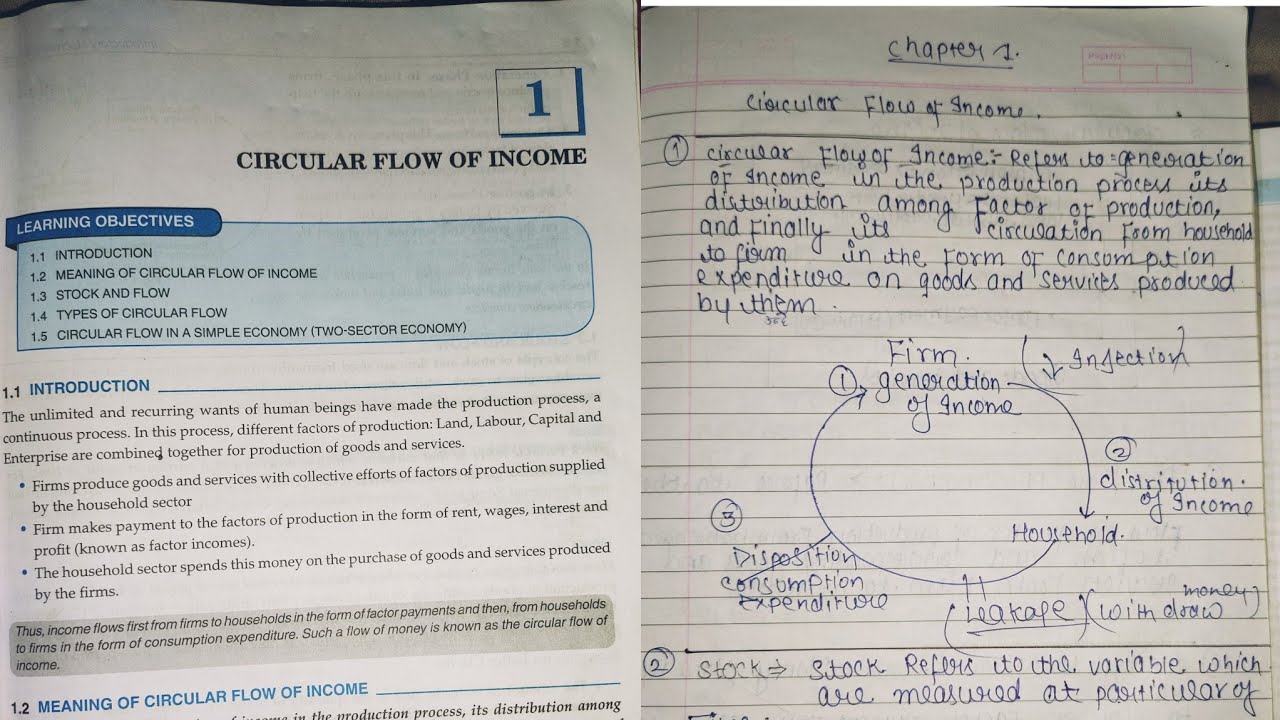 1
CIRCULAR FLOW OF INCOME
LEARNING OBJECTIVES
1.1 INTRODUCTION
1.2 MEANING OF CIRCULAR FLOW OF INCOME
1.3 STOCK AND FLOW
1.4 TYPES OF CIRCULAR FLOW
1.5 CIRCULAR FLOW IN A SIMPLE ECONOMY (TWO-SECTOR ECONOMY)
1.1 INTRODUCTION
The unlimited and recurring wants of human beings have made the production process, a
continuous process. In this process, different factors of production: Land, Labour, Capital and
Enterprise are combined together for production of goods and services.
• Firms produce goods and services with collective efforts of factors of production supplied
by the household sector
• Firm makes payment to the factors of production in the form of rent, wages, interest and
profit (known as factor incomes).
• The household sector spends this money on the purchase of goods and services produced
by the firms.
Thus, income flows first from firms to households in the form of factor payments and then, from households
to firms in the form of consumption expenditure. Such a flow of money is known as the circular flow of
income.
1.2 MEANING OF CIRCULAR FLOW OF INCOME
income in the production process, its distribution among
Chapter 1.
Circular Flow of Income.
① circular Flow of Income:- Refers to generation
of Income in the production process its
distribution among Factor of production,
and Finally its circulation From household
to firm in the form of consumption
expenditure on goods and services produced
by them.
Firm.
(↓ Injection)
① generation
of Income
②
distritution.
of Income
③
Household.
Disposition
consumption
Expenditure
money
(Leakage) (with draw)
② Stock ⇒ Stock Refers to the variable which
are measured at particular of